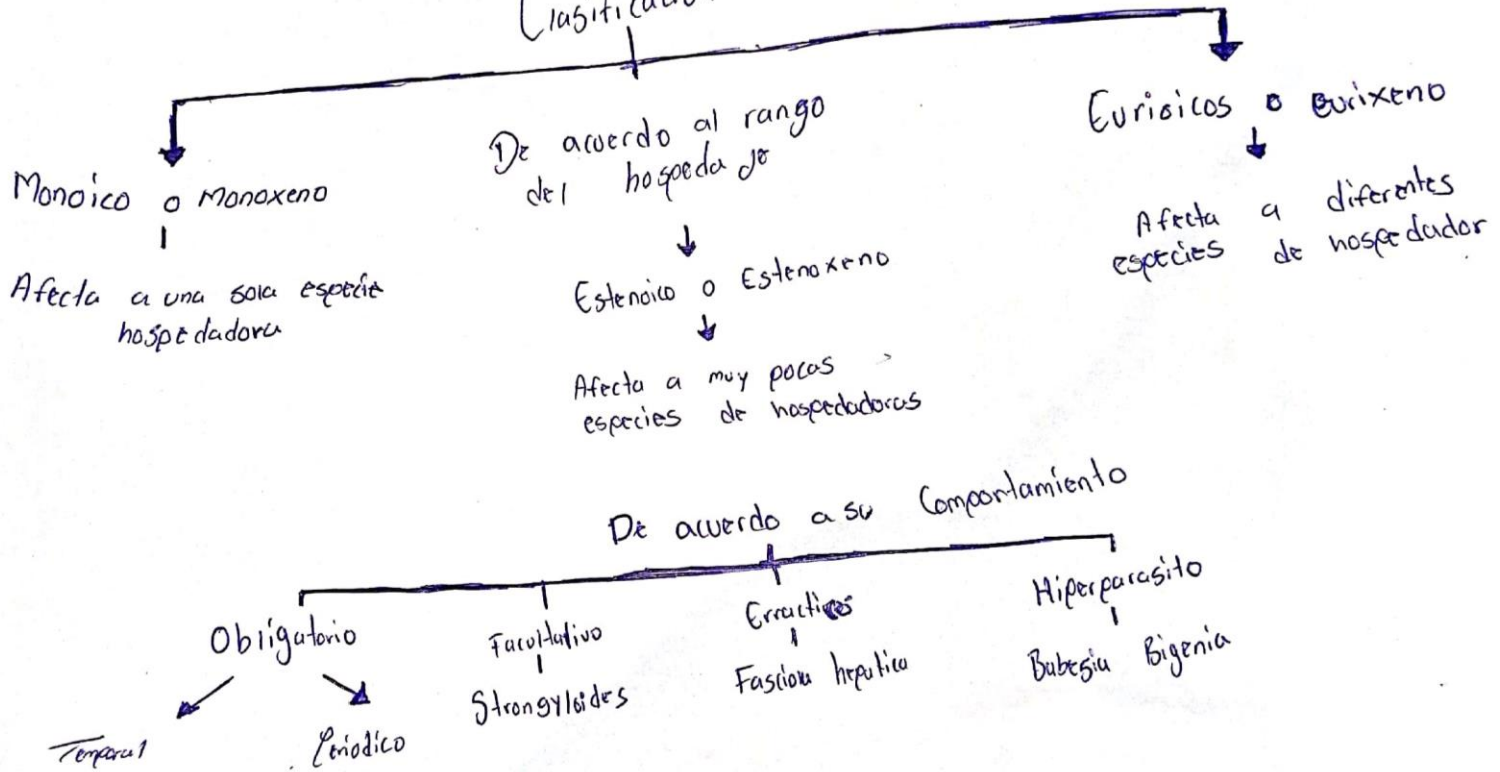 De acuerdo al rango
del hospeda je
Monoico o Monoxeno
Afecta a una sola especie
hospedadora
Estenoico o Estenoxeno
Afecta a muy pocas
especies de hospedadoras
Eurioicos o eurixeno
Afecta a diferentes
especies de hospedador
De acuerdo a su Comportamiento
Obligatorio
Temporal
Periodico
Facultativo
Strongyloides
Erracticos
Fasciola hepatica
Hiperparasito
Babesia Bigenia